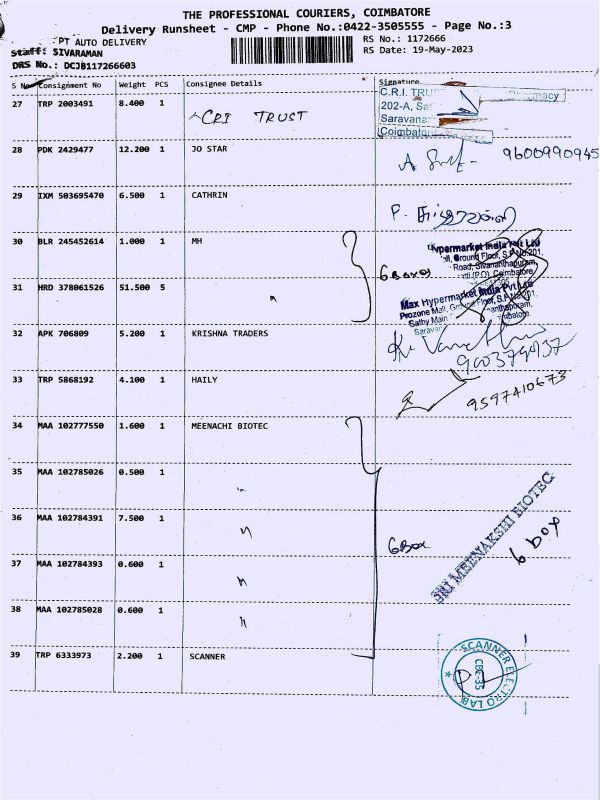 THE PROFESSIONAL COURIERS, COIMBATORE
Delivery Runsheet - CMP - Phone No.:0422-3505555 - Page No.:3
PT AUTO DELIVERY
Staff: SIVARAMAN
DRS No.: DCJB117266603
RS No.: 1172666
RS Date: 19-May-2023
S No Consignment No Weight PCS Consignee Details Signature
27 TRP 2003491 8.400 1 CRI TRUST
C.R.I. TRU
202-A, Sa
Saravana
Coimbator
macy
28 PDK 2429477 12.200 1 JO STAR 9600990945
29 IXM 503695470 6.500 1 CATHRIN
30 BLR 245452614 1.000 1 MH
6 Boxes
ypermarket India Pvt Ltd
all, Ground Floor, S.F.No.201,
Road, Sivananthapuram,
31 HRD 378061526 51.500 5 "
Max Hypermarket India Pvt Ltd
Prozone Mall, Ground Floor, S.F.No.201,
Sathy Main
Saravan
32 APK 706809 5.200 1 KRISHNA TRADERS
33 TRP 5868192 4.100 1 HAILY 9597410673
34 MAA 102777550 1.600 1 MEENACHI BIOTEC
35 MAA 102785026 0.500 1 "
36 MAA 102784391 7.500 1 "
6 Box
SRI MEENAKSHI BIOTEC
6 box
37 MAA 102784393 0.600 1 "
38 MAA 102785028 0.600 1 "
39 TRP 6333973 2.200 1 SCANNER
SCANNER ELECTRO LAB
CBE-35